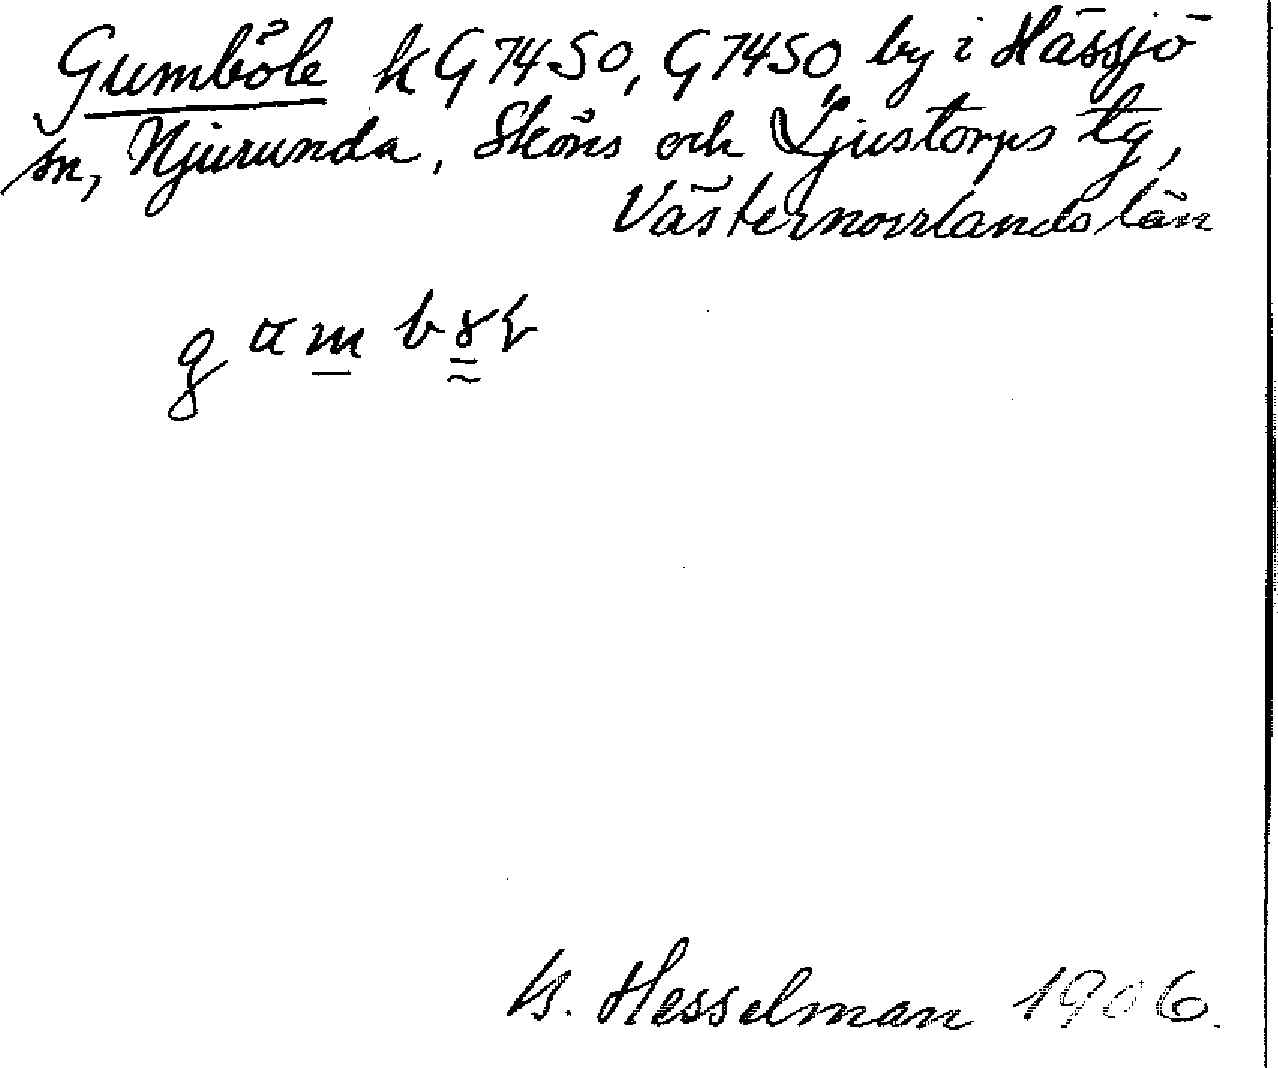 Gumböle kG7450, G7450, by i Hässjö
sn, Njurunda, Sköns och Ljustorps tg,
Västernorrlands län
B. Hesselman 1906.